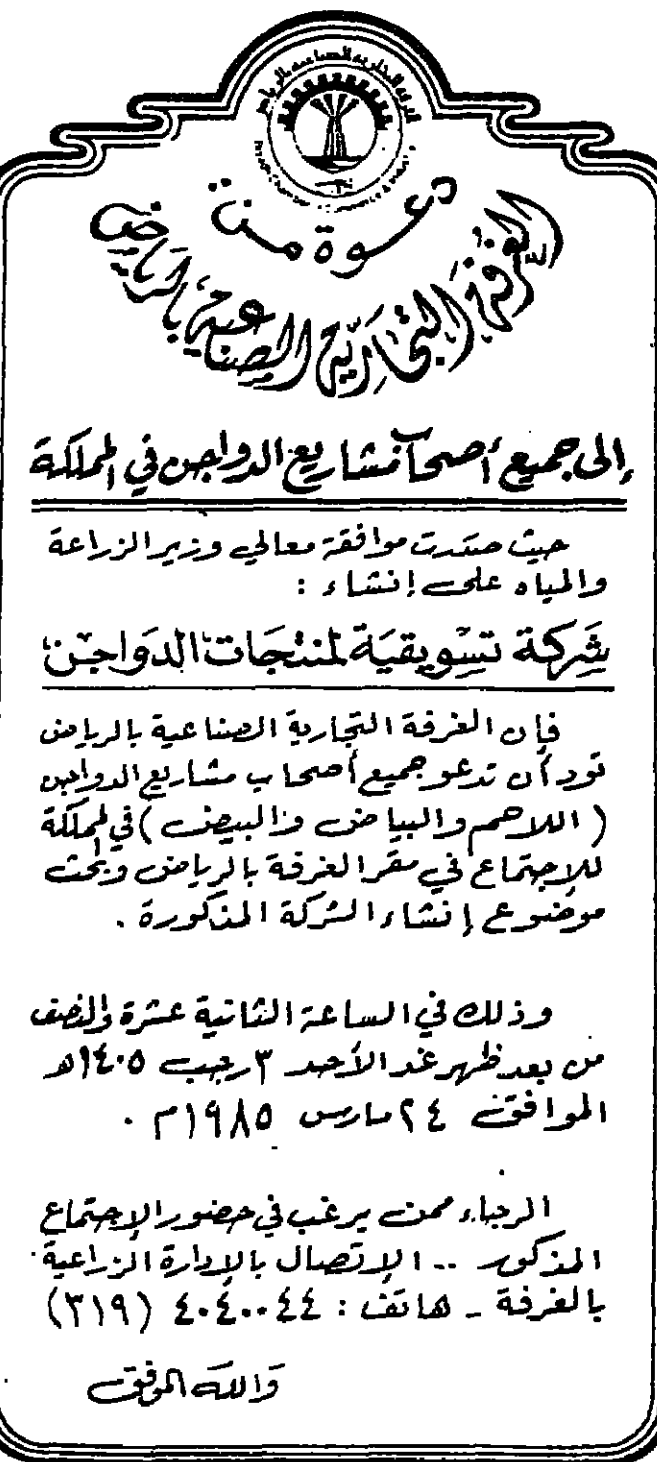 الغرفة التجارية الصناعية بالرياض
دعوة من
الغرفة التجارية الصناعية بالرياض
إلى جميع أصحاب مشاريع الدواجن في المملكة
حيث صدرت موافقة معالي وزير الزراعة
والمياه على إنشاء :
شركة تسويقية لمنتجات الدواجن
فإن الغرفة التجارية الصناعية بالرياض
تود أن تدعو جميع أصحاب مشاريع الدواجن
( اللاحم والبياض والبيض ) في المملكة
للإجتماع في مقر الغرفة بالرياض وبحث
موضوع إنشاء الشركة المذكورة .
وذلك في الساعة الثانية عشرة والنصف
من بعد ظهر غد الأحد ٣ رجب ١٤٠٥هـ
الموافق ٢٤ مارس ١٩٨٥م .
الرجاء ممن يرغب في حضور الإجتماع
المذكور .. الإتصال بالإدارة الزراعية
بالغرفة - هاتف : ٤٠٤٠٠٤٤ (٣١٩)
والله الموفق